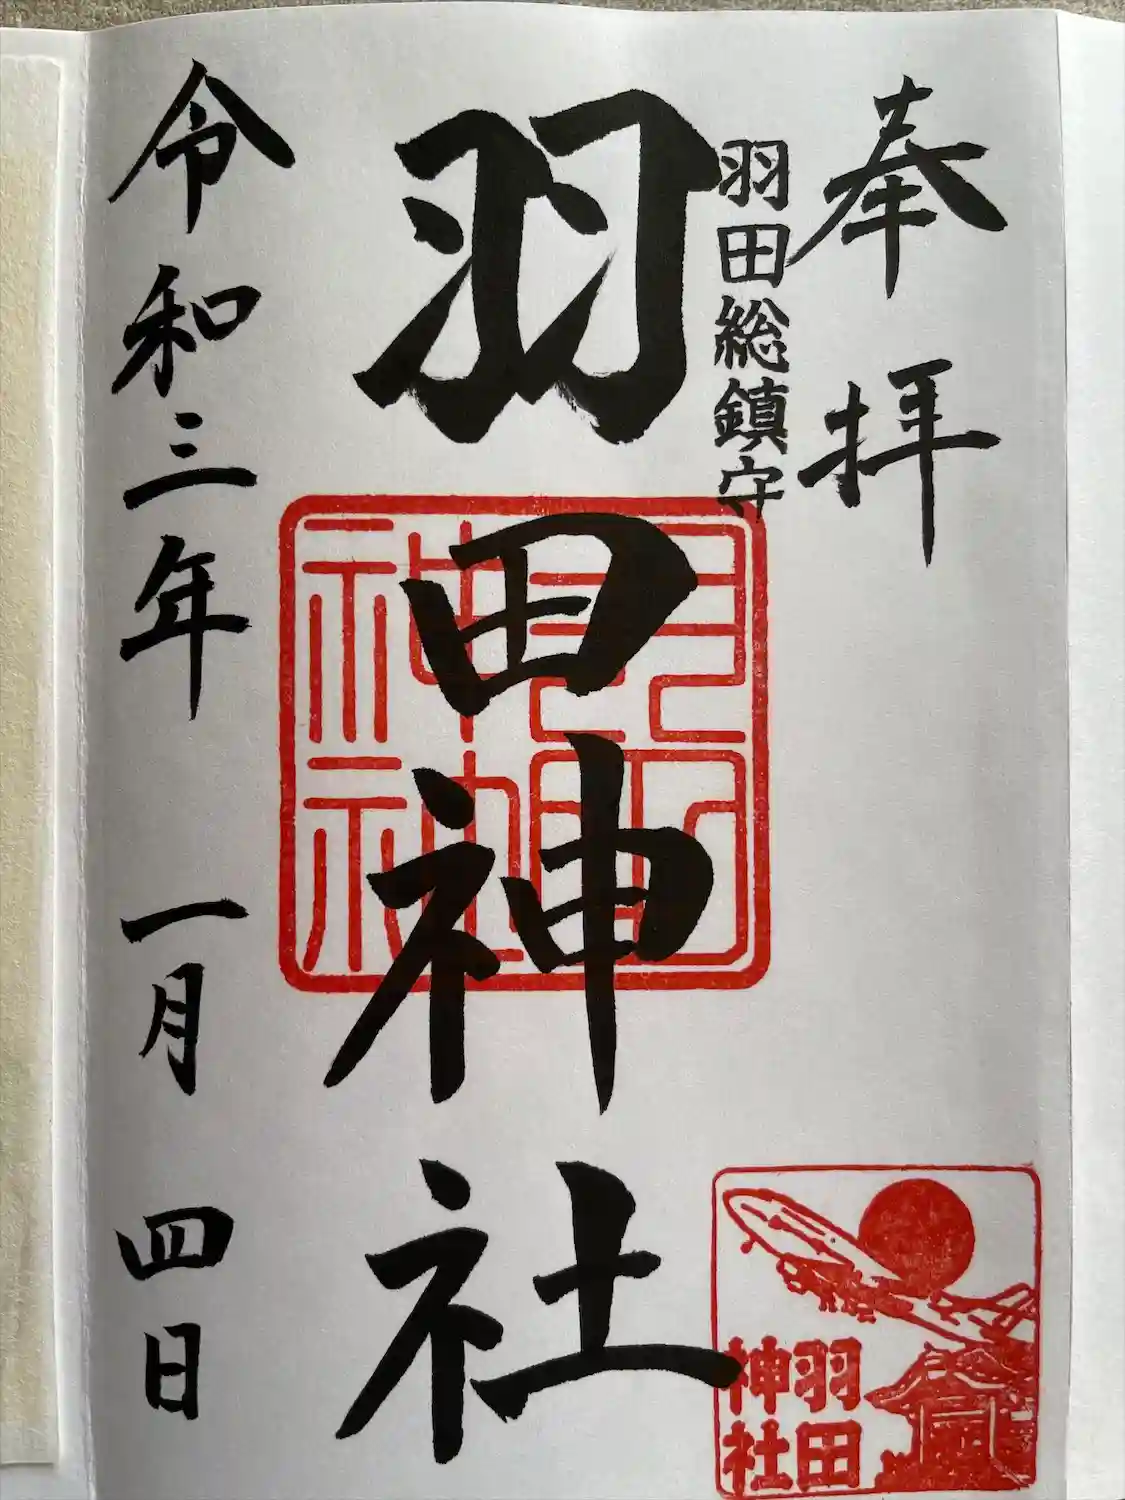 奉拝
羽田総鎮守
羽田神社
令和三年 一月 四日
羽田
神社